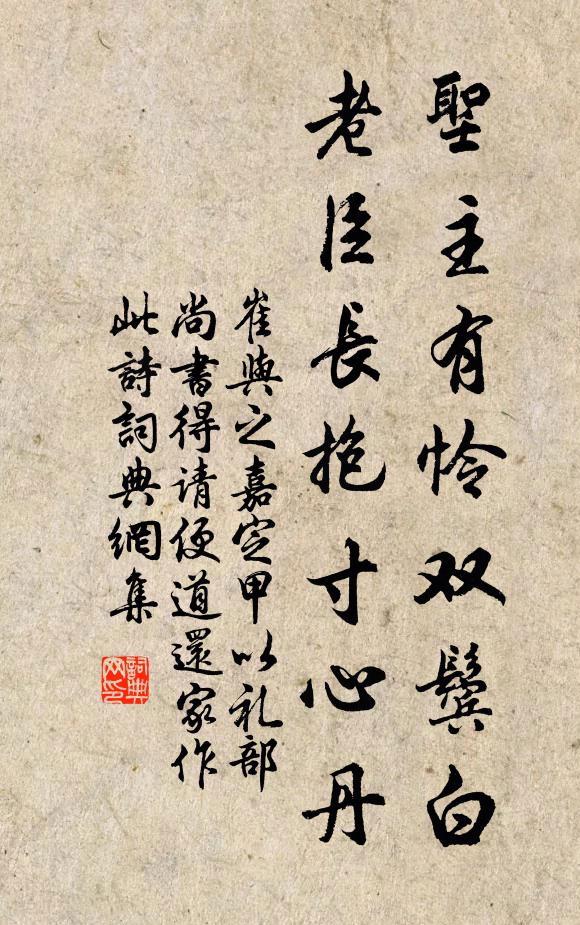 聖主有怜双鬓白
老臣長抱寸心丹
崔與之嘉定甲以礼部
尚書得请便道還家作
此詩詞典網集
詞典网印